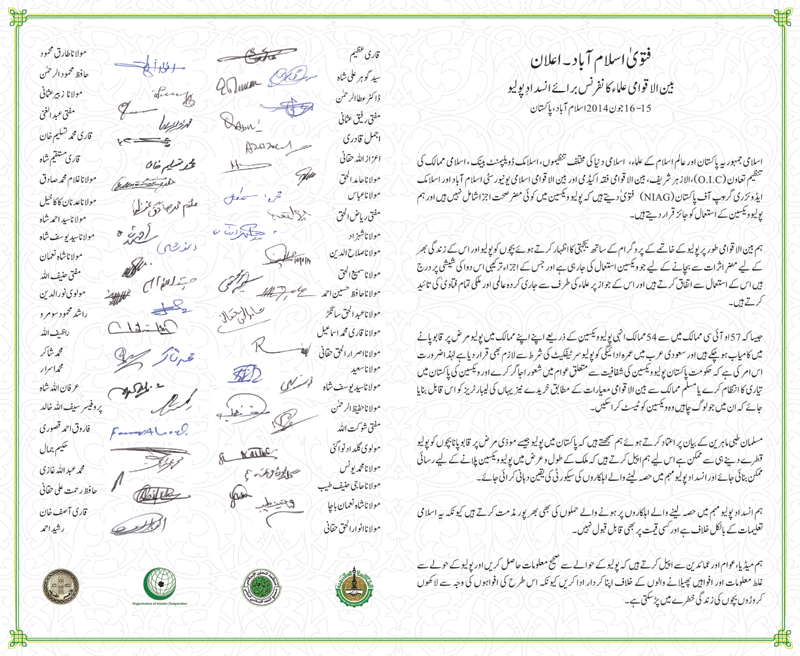 فتویٰ اسلام آباد۔ اعلان
بین الاقوامی علماء کانفرنس برائے انسداد پولیو
15-16 جون 2014 اسلام آباد، پاکستان
اسلامی جمہوریہ پاکستان اور عالم اسلام کے علماء، اسلامی دنیا کی مختلف تنظیموں، اسلامک ڈویلپمنٹ بینک، اسلامی ممالک کی
تنظیم تعاون (O.I.C)، الازہر شریف، بین الاقوامی فقہ اکیڈمی اور بین الاقوامی اسلامی یونیورسٹی اسلام آباد اور اسلامک
ایڈوئزری گروپ آف پاکستان (NIAG) فتویٰ دیتے ہیں کہ پولیو ویکسین میں کوئی مضر صحت اجزا شامل نہیں ہیں اور ہم
پولیو ویکسین کے استعمال کو جائز قرار دیتے ہیں۔
ہم بین الاقوامی طور پر پولیو کے خاتمے کے پروگرام کے ساتھ یکجہتی کا اظہار کرتے ہوئے بچوں کو پولیو اور اس کے زندگی بھر
کے لیے مضر اثرات سے بچانے کے لیے جو ویکسین استعمال کی جا رہی ہے اور جس کے اجزاء ترکیبی اس دوا کی شیشی پر درج
ہیں اس کے استعمال سے اتفاق کرتے ہیں اور اس کے جواز پر علماء کی طرف سے جاری کردہ عالمی اور ملکی تمام فتاویٰ کی تائید
کرتے ہیں۔
جیسا کہ 57 او آئی سی ممالک میں سے 54 ممالک انہی پولیو ویکسین کے ذریعے اپنے اپنے ممالک میں پولیو مرض پر قابو پانے
میں کامیاب ہو چکے ہیں اور سعودی عرب میں عمرہ ادائیگی کو پولیو سرٹیفکیٹ کی شرط سے لازم بھی قرار دیا ہے لہٰذا ضرورت
اس امر کی ہے کہ حکومت پاکستان پولیو ویکسین کی شفافیت سے متعلق عوام میں شعور اجاگر کرے اور ویکسین کی پاکستان میں
تیاری کا انتظام کرے یا مسلم ممالک سے بین الاقوامی معیارات کے مطابق خریدے نیز یہاں کی لیبارٹریز کو اس قابل بنایا
جائے کہ ان میں جو لوگ چاہیں وہ ویکسین کو ٹیسٹ کرا سکیں۔
مسلمان طبی ماہرین کے بیان پر اعتماد کرتے ہوئے ہم سمجھتے ہیں کہ پاکستان میں پولیو جیسے موذی مرض پر قابو پانا بچوں کو پولیو
قطرے دینے ہی سے ممکن ہے اس لیے ہم اپیل کرتے ہیں کہ ملک کے طول و عرض میں پولیو ویکسین پلانے کے لیے رسائی
ممکن بنائی جائے اور انسداد پولیو مہم میں حصہ لینے والے اہلکاروں کی سیکورٹی کی یقین دہانی کرائی جائے۔
ہم انسداد پولیو مہم میں حصہ لینے والے اہلکاروں پر ہونے والے حملوں کی بھی بھرپور مذمت کرتے ہیں کیونکہ یہ اسلامی
تعلیمات کے بالکل خلاف ہے اور کسی قیمت پر بھی قابل قبول نہیں۔
ہم میڈیا، عوام اور عمائدین سے اپیل کرتے ہیں کہ پولیو کے حوالے سے صحیح معلومات حاصل کریں اور پولیو کے حوالے سے
غلط معلومات اور افواہیں پھیلانے والوں کے خلاف اپنا کردار ادا کریں کیونکہ اس طرح کی افواہوں کی وجہ سے لاکھوں
کروڑوں بچوں کی زندگی خطرے میں پڑ سکتی ہے۔
قاری عظیم
سید گوہر علی شاہ
ڈاکٹر عطا الرحمٰن
مفتی رفیق عثمانی
اجمل قادری
اعزاز اللہ حقانی
مولانا حامد الحق
مولانا عباس
مفتی ریاض الحق
مولانا شہزاد
مولانا صلاح الدین
مولانا سمیع الحق
مولانا حافظ حسین احمد
مولانا عبد الحق سانگز
مولانا قاری محمد اسماعیل
مولانا اسرار الحق حقانی
مولانا سعید
مولانا سید یوسف شاہ
مولانا حفیظ الرحمٰن
مفتی شوکت اللہ
مولوی گلداد نوانگئی
مولانا محمد یونس
مولانا حاجی حنیف طیب
مولانا شاہ نعمان باچا
مولانا انوار الحق حقانی
مولانا طارق محمود
حافظ محمود الرحمٰن
مولانا زبیر عثمانی
مفتی عبد الغنی
قاری محمد تسلیم خان
قاری مستقیم شاہ
مولانا غلام محمد صادق
مولانا عدنان کاکاخیل
مولانا سید احمد شاہ
مولانا سید یوسف شاہ
مولانا شاہ نعمان
مفتی حنیف اللہ
مولوی نور الدین
راشد محمود سومرو
راطیف اللہ
محمد شاکر
محمد اسرار
عرفان اللہ شاہ
پروفیسر سیف اللہ خالد
فاروق احمد قصوری
حکیم جمال
محمد عبد اللہ غازی
حافظ رحمت علی حقانی
قاری آصف خان
رشید احمد
Organisation of Islamic Cooperation